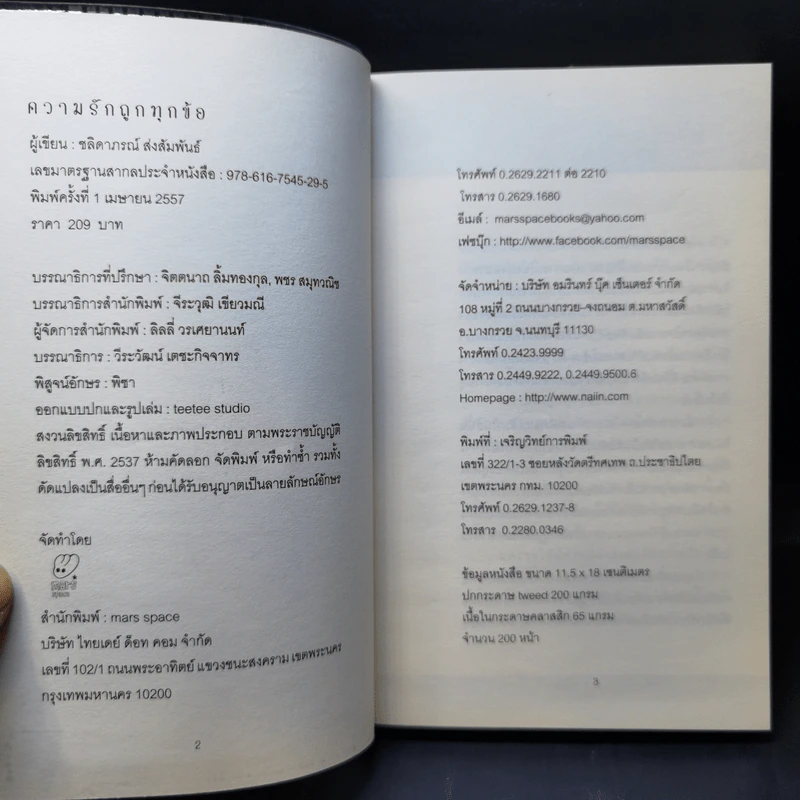 ความรักถูกทุกข้อ
ผู้เขียน : ชลิดาภรณ์ ส่งสัมพันธ์
เลขมาตรฐานสากลประจำหนังสือ : 978-616-7545-29-5
พิมพ์ครั้งที่ 1 เมษายน 2557
ราคา 209 บาท
บรรณาธิการที่ปรึกษา : จิตตนาถ ลิ้มทองกุล, พชร สมุทวณิช
บรรณาธิการสำนักพิมพ์ : จีระวุฒิ เขียวมณี
ผู้จัดการสำนักพิมพ์ : ลิลลี่ วรเศยานนท์
บรรณาธิการ : วีระวัฒน์ เตชะกิจจาทร
พิสูจน์อักษร : พิชา
ออกแบบปกและรูปเล่ม : teetee studio
สงวนลิขสิทธิ์ เนื้อหาและภาพประกอบ ตามพระราชบัญญัติ
ลิขสิทธิ์ พ.ศ. 2537 ห้ามคัดลอก จัดพิมพ์ หรือทำซ้ำ รวมทั้ง
ดัดแปลงเป็นสื่ออื่นๆ ก่อนได้รับอนุญาตเป็นลายลักษณ์อักษร
จัดทำโดย
mars
space
สำนักพิมพ์ : mars space
บริษัท ไทยเดย์ ด็อท คอม จำกัด
เลขที่ 102/1 ถนนพระอาทิตย์ แขวงชนะสงคราม เขตพระนคร
กรุงเทพมหานคร 10200
2
โทรศัพท์ 0.2629.2211 ต่อ 2210
โทรสาร 0.2629.1680
อีเมล์ : marsspacebooks@yahoo.com
เฟซบุ๊ก : http://www.facebook.com/marsspace
จัดจำหน่าย : บริษัท อมรินทร์ บุ๊ค เซ็นเตอร์ จำกัด
108 หมู่ที่ 2 ถนนบางกรวย-จงถนอม ต.มหาสวัสดิ์
อ.บางกรวย จ.นนทบุรี 11130
โทรศัพท์ 0.2423.9999
โทรสาร 0.2449.9222, 0.2449.9500.6
Homepage : http://www.naiin.com
พิมพ์ที่ : เจริญวิทย์การพิมพ์
เลขที่ 322/1-3 ซอยหลังวัดตรีทศเทพ ถ.ประชาธิปไตย
เขตพระนคร กทม. 10200
โทรศัพท์ 0.2629.1237-8
โทรสาร 0.2280.0346
ข้อมูลหนังสือ ขนาด 11.5 x 18 เซนติเมตร
ปกกระดาษ tweed 200 แกรม
เนื้อในกระดาษคลาสสิก 65 แกรม
จำนวน 200 หน้า
3